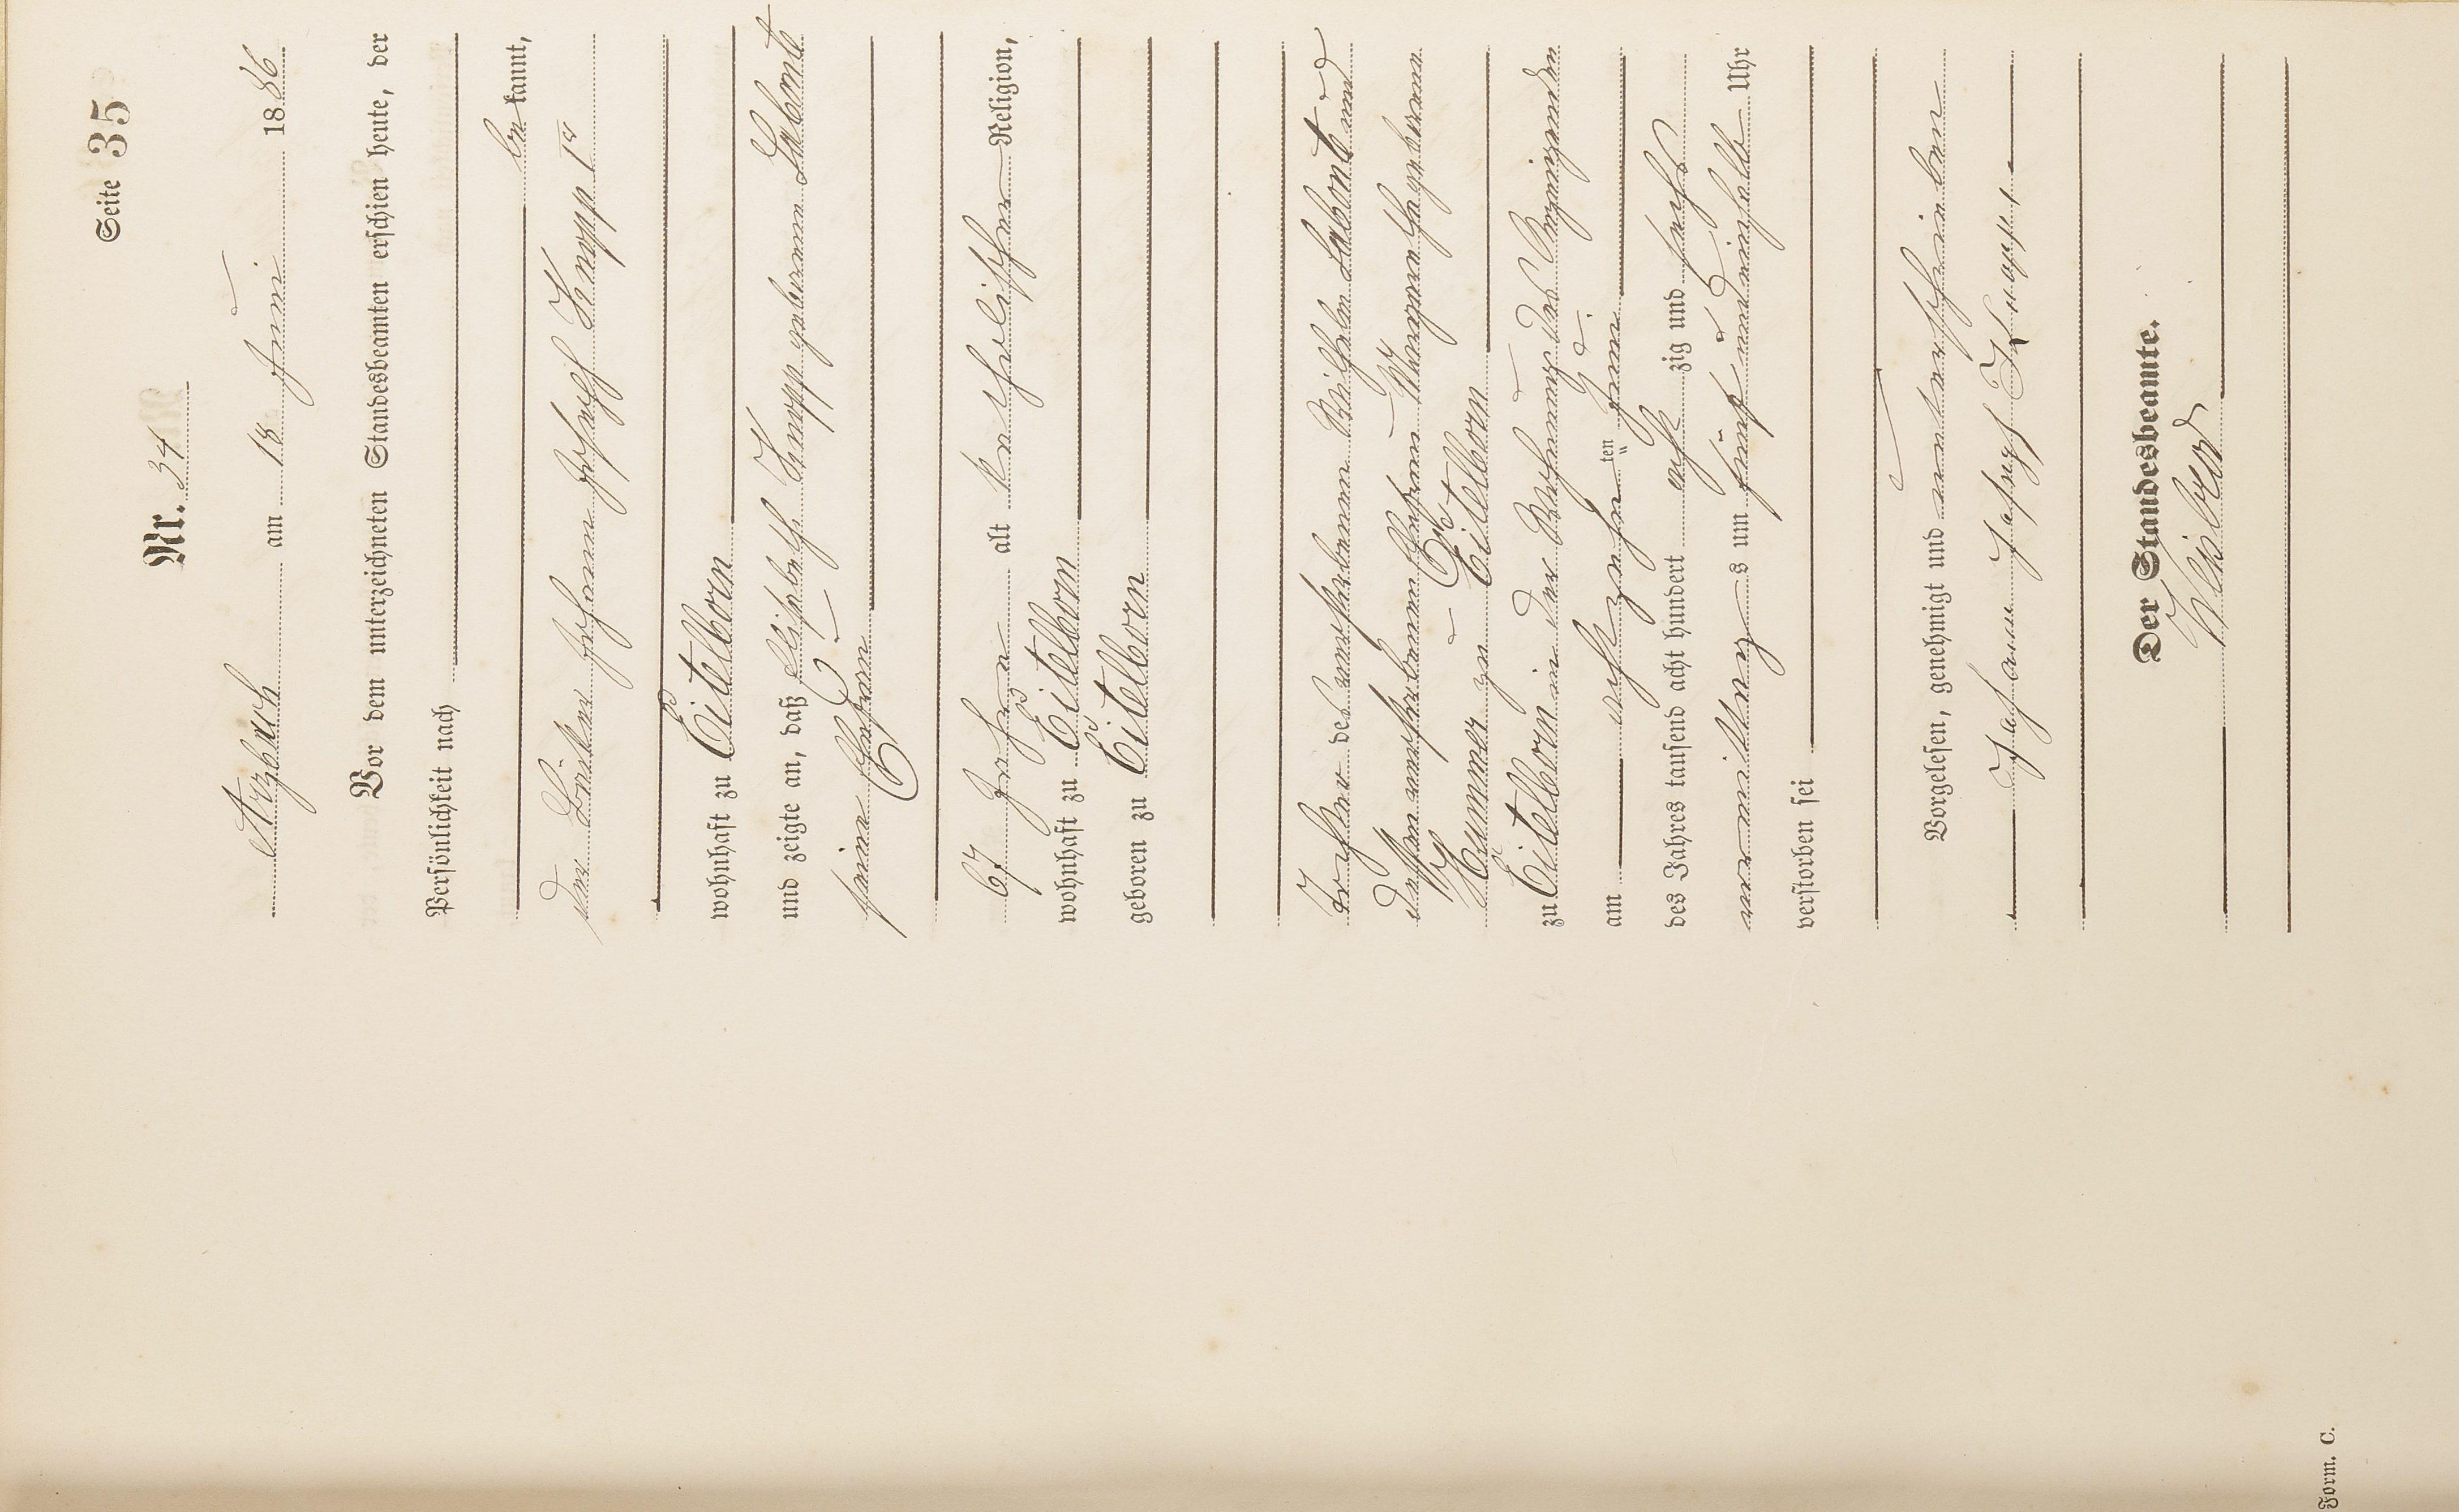 Seite 35
Nr. 34
Arzbach am 18 Juni 1886
Vor dem unterzeichneten Standesbeamten erschien heute, der
Persönlichkeit nach
be kannt,
der Johann Joseph Knopp 1r
wohnhaft zu Eitelborn
und zeigte an, daß Elisabeth Knopp geborene Labonte
seine Ehefrau
67 Jahre alt katholischer Religion,
wohnhaft zu Eitelborn
geboren zu Eitelborn
Tochter des verstorbenen Wilhelm Labonte und
dessen verstorbenen Ehefrau Margaretha geborene
Hummer zu Eitelborn
zu Eitelborn in der Wohnung des Anzeigenden
am acht zehn ten Juni
des Jahres tausend acht hundert acht zig und sechs
vormittags um fünf und einhalb Uhr
verstorben sei
Vorgelesen, genehmigt und unterschrieben
Johann Joseph Knopp 1
Der Standesbeamte.
Form. C.